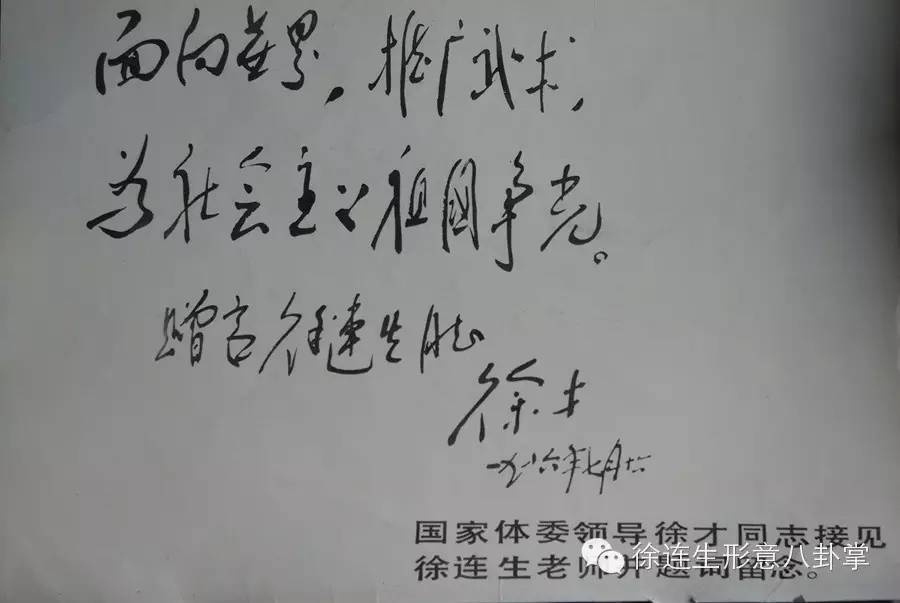 面向世界，推广武术，
为社会主义祖国争光。
赠言徐连生同志
徐才
一九八六年七月十六
国家体委领导徐才同志接见
徐连生老师并题词留念。
徐连生形意八卦掌